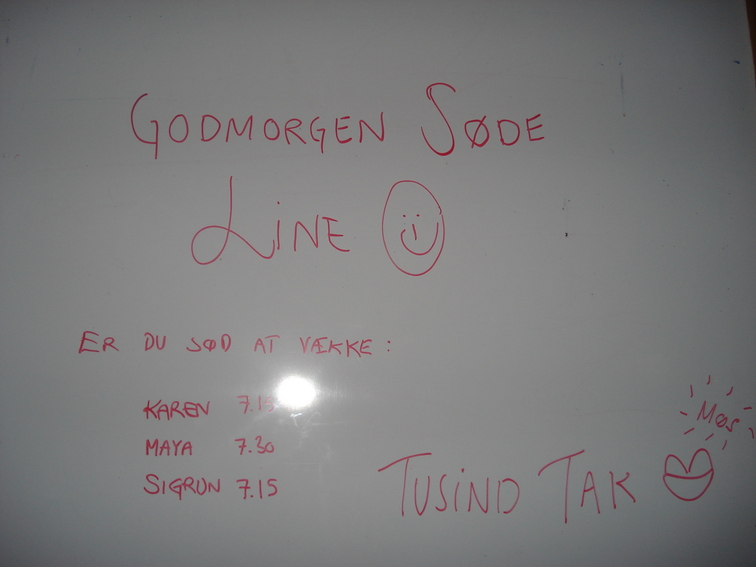 GODMORGEN SØDE
LINE
ER DU SØD AT VÆKKE :
KAREN 7.15
MAYA 7.30
SIGRUN 7.15
TUSIND TAK
Møs